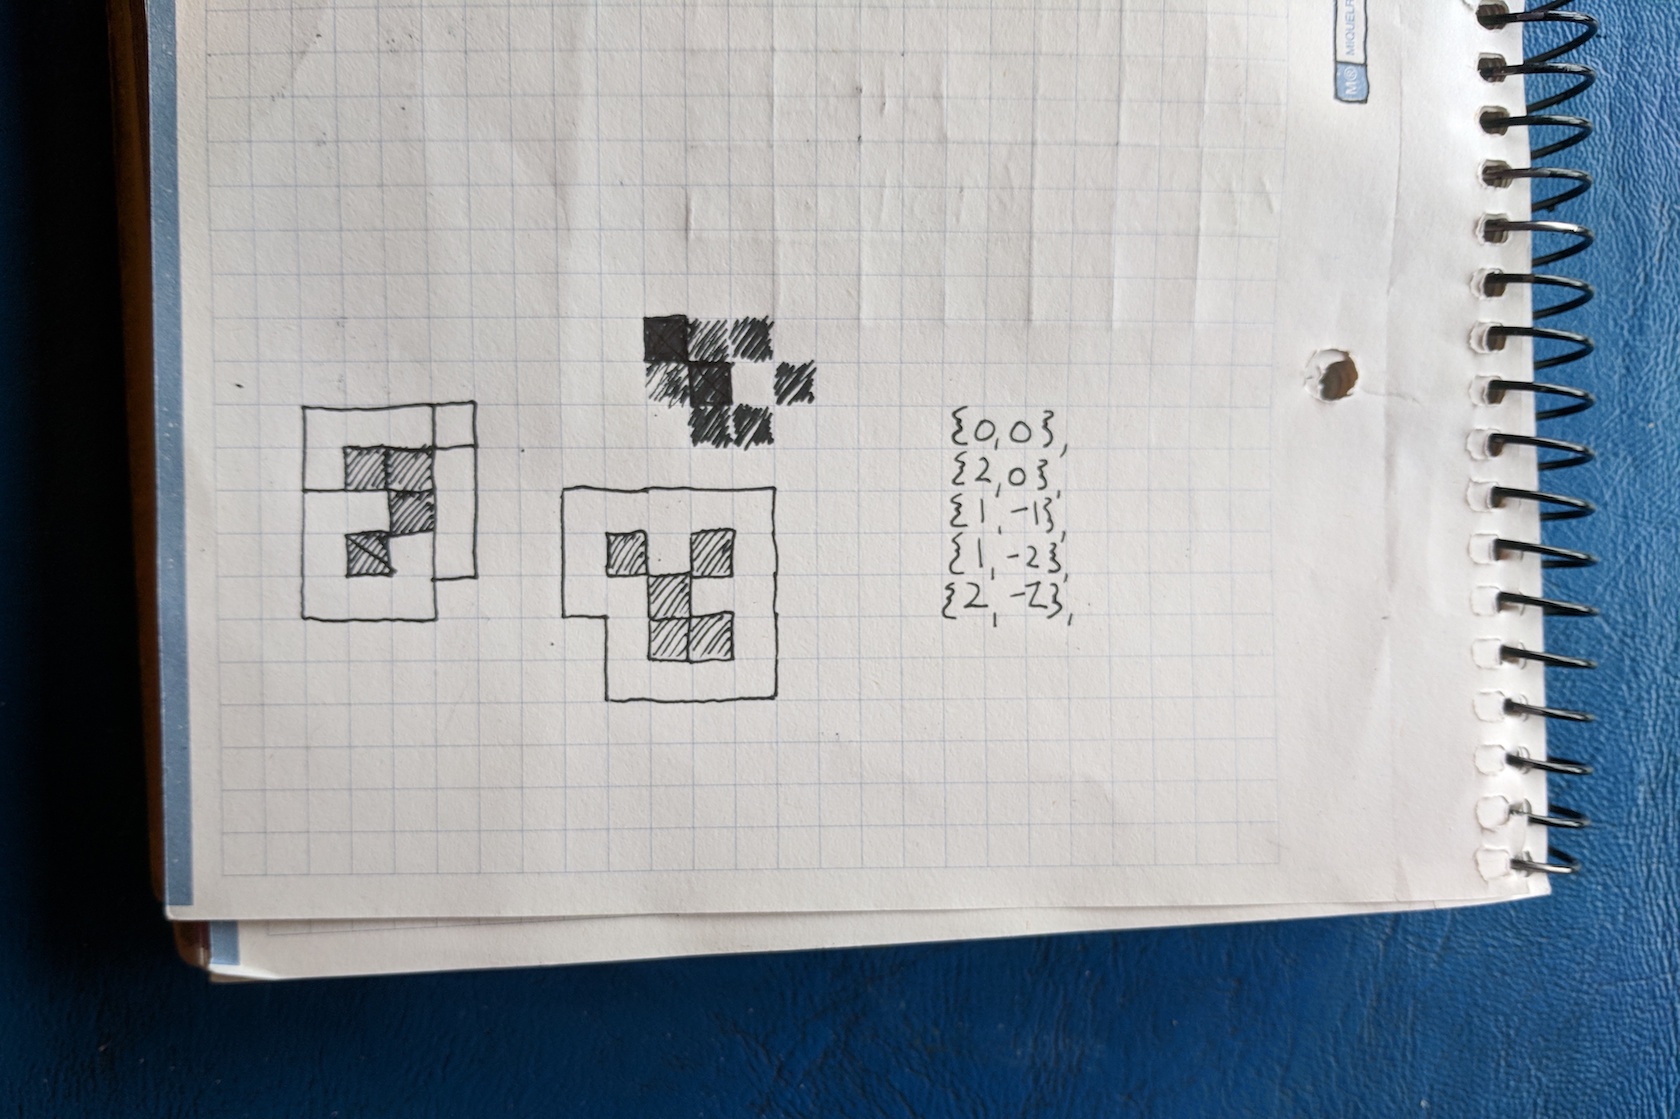 MIQUELR
M®
{0,0},
{2,0},
{1,-1},
{1,-2},
{2,-2},